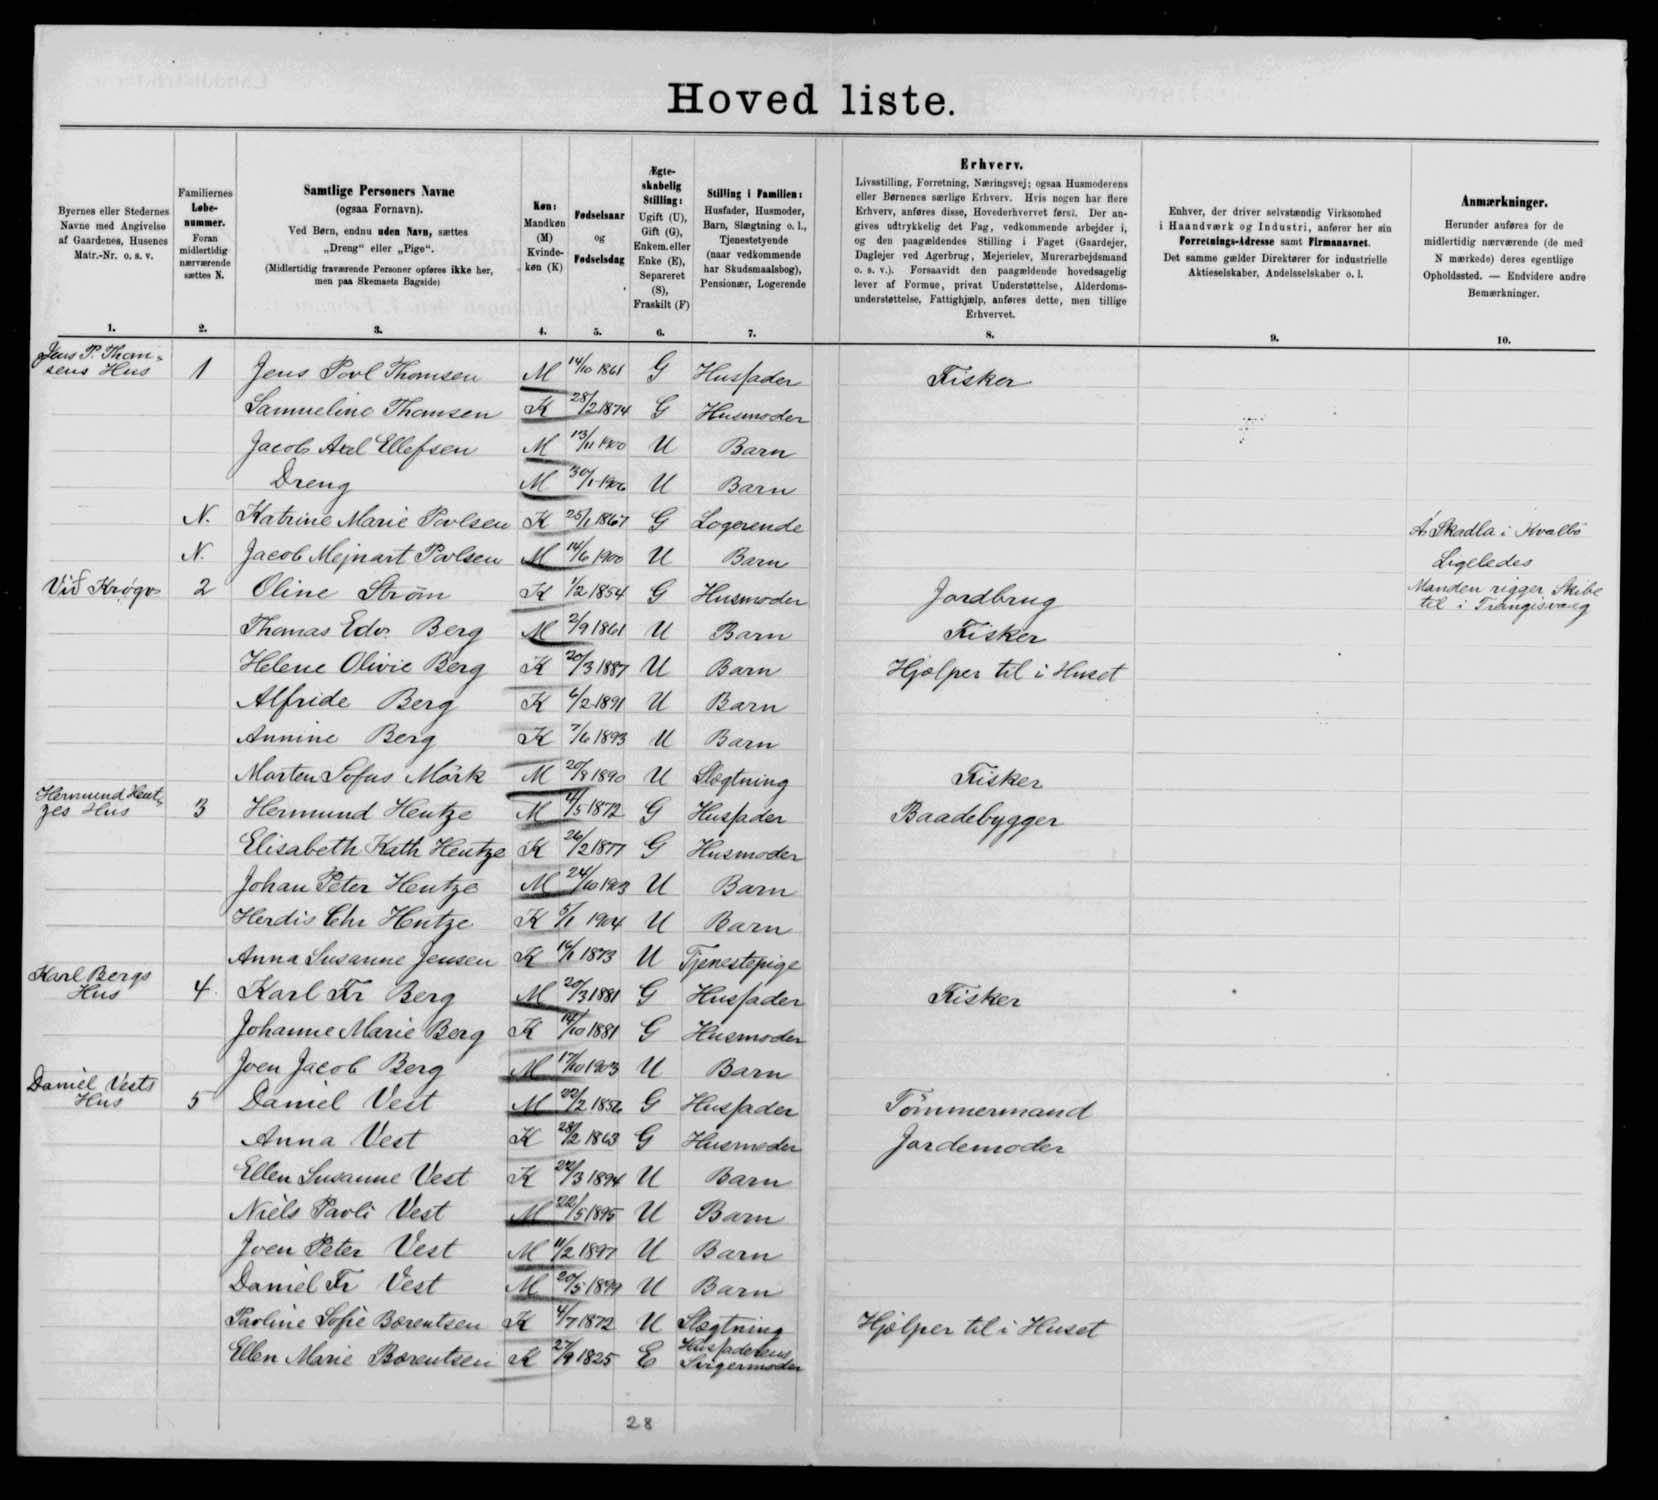 Hoved liste.
Byernes eller Stedernes
Navne med Angivelse
af Gaardenes, Husenes
Matr.-Nr. o. s. v.
1.
Familiernes
Løbe-
nummer.
Foran
midlertidig
nærværende
sættes N.
2.
Samtlige Personers Navne
(ogsaa Fornavn).
Ved Børn, endnu uden Navn, sættes
„Dreng“ eller „Pige“.
(Midlertidig fraværende Personer opføres ikke her,
men paa Skemaets Bagside)
3.
Køn:
Mandkøn
(M)
Kvinde-
køn (K)
4.
Fødselsaar
og
Fødselsdag
5.
Ægte-
skabelig
Stilling:
Ugift (U),
Gift (G),
Enkem. eller
Enke (E),
Separeret
(S),
Fraskilt (F)
6.
Stilling i Familien:
Husfader, Husmoder,
Barn, Slægtning o. l.,
Tjenestetyende
(naar vedkommende
har Skudsmaalsbog),
Pensionær, Logerende
7.
Erhverv.
Livsstilling, Forretning, Næringsvej; ogsaa Husmoderens
eller Børnenes særlige Erhverv. Hvis nogen har flere
Erhverv, anføres disse, Hovederhvervet først. Der an-
gives udtrykkelig det Fag, vedkommende arbejder i,
og den paagældendes Stilling i Faget (Gaardejer,
Daglejer ved Agerbrug, Mejerielev, Murerarbejdsmand
o. s. v.). Forsaavidt den paagældende hovedsagelig
lever af Formue, privat Understøttelse, Alderdoms-
understøttelse, Fattighjælp, anføres dette, men tillige
Erhvervet.
8.
Enhver, der driver selvstændig Virksomhed
i Haandværk og Industri, anfører her sin
Forretnings-Adresse samt Firmanavnet.
Det samme gælder Direktører for industrielle
Aktieselskaber, Andelsselskaber o. l.
9.
Anmærkninger.
Herunder anføres for de
midlertidig nærværende (de med
N mærkede) deres egentlige
Opholdssted. — Endvidere andre
Bemærkninger.
10.
Jens P. Thom-
sens Hus 1 Jens Povl Thomsen M 14/10 1861 G Husfader Fisker
Samueline Thomsen K 28/2 1874 G Husmoder
Jacob Axel Ellefsen M 13/11 1900 U Barn
Dreng M 30/1 1906 U Barn
N. Katrine Marie Povlsen K 25/1 1867 G Logerende Á Skadla i Hvalbö
N. Jacob Mejnart Povlsen M 14/6 1900 U Barn Ligeledes
Við Krøgv 2 Oline Strøm K 1/2 1854 G Husmoder Jordbrug Manden rigger Skibe
til i Trangisvaag
Thomas Edv. Berg M 2/9 1861 U Barn Fisker
Helene Olivie Berg K 20/3 1887 U Barn Hjælper til i Huset
Alfride Berg K 6/2 1891 U Barn
Annine Berg K 7/6 1893 U Barn
Morten Sofus Mörk M 20/8 1890 U Slægtning Fisker
Hermund Hent-
zes Hus 3 Hermund Hentze M 11/5 1872 G Husfader Baadebygger
Elisabeth Kath Hentze K 26/2 1877 G Husmoder
Johan Peter Hentze M 24/10 1903 U Barn
Herdis Chr Hentze K 5/1 1904 U Barn
Anna Susanne Jensen K 16/1 1873 U Tjenestepige
Karl Bergs
Hus 4. Karl Fr Berg M 20/3 1881 G Husfader Fisker
Johanne Marie Berg K 14/10 1881 G Husmoder
Joen Jacob Berg M 17/10 1903 U Barn
Daniel Vests
Hus 5 Daniel Vest M 22/2 1856 G Husfader Tömmermand
Anna Vest K 28/2 1863 G Husmoder Jordemoder
Ellen Susanne Vest K 22/3 1894 U Barn
Niels Pavli Vest M 22/5 1895 U Barn
Joen Peter Vest M 11/2 1897 U Barn
Daniel Fr Vest M 20/5 1899 U Barn
Pavline Sofie Bærentsen K 4/7 1872 U Slægtning Hjælper til i Huset
Ellen Marie Bærentsen K 27/9 1825 E Husfaderens
Svigermoder
28